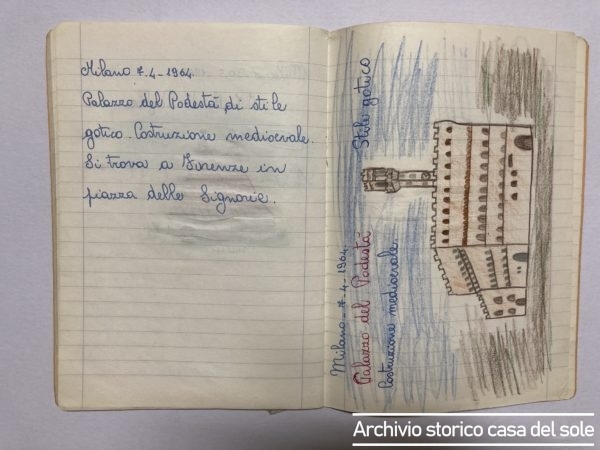 Milano 7.4-1964.
Palazzo del Podestà, di stile
gotico. Costruzione medioevale.
Si trova a Firenze in
piazza delle Signorie.
Milano - 7. 4 - 1964.
Palazzo del Podestà
Costruzione medioevale
Stile gotico
Archivio storico casa del sole